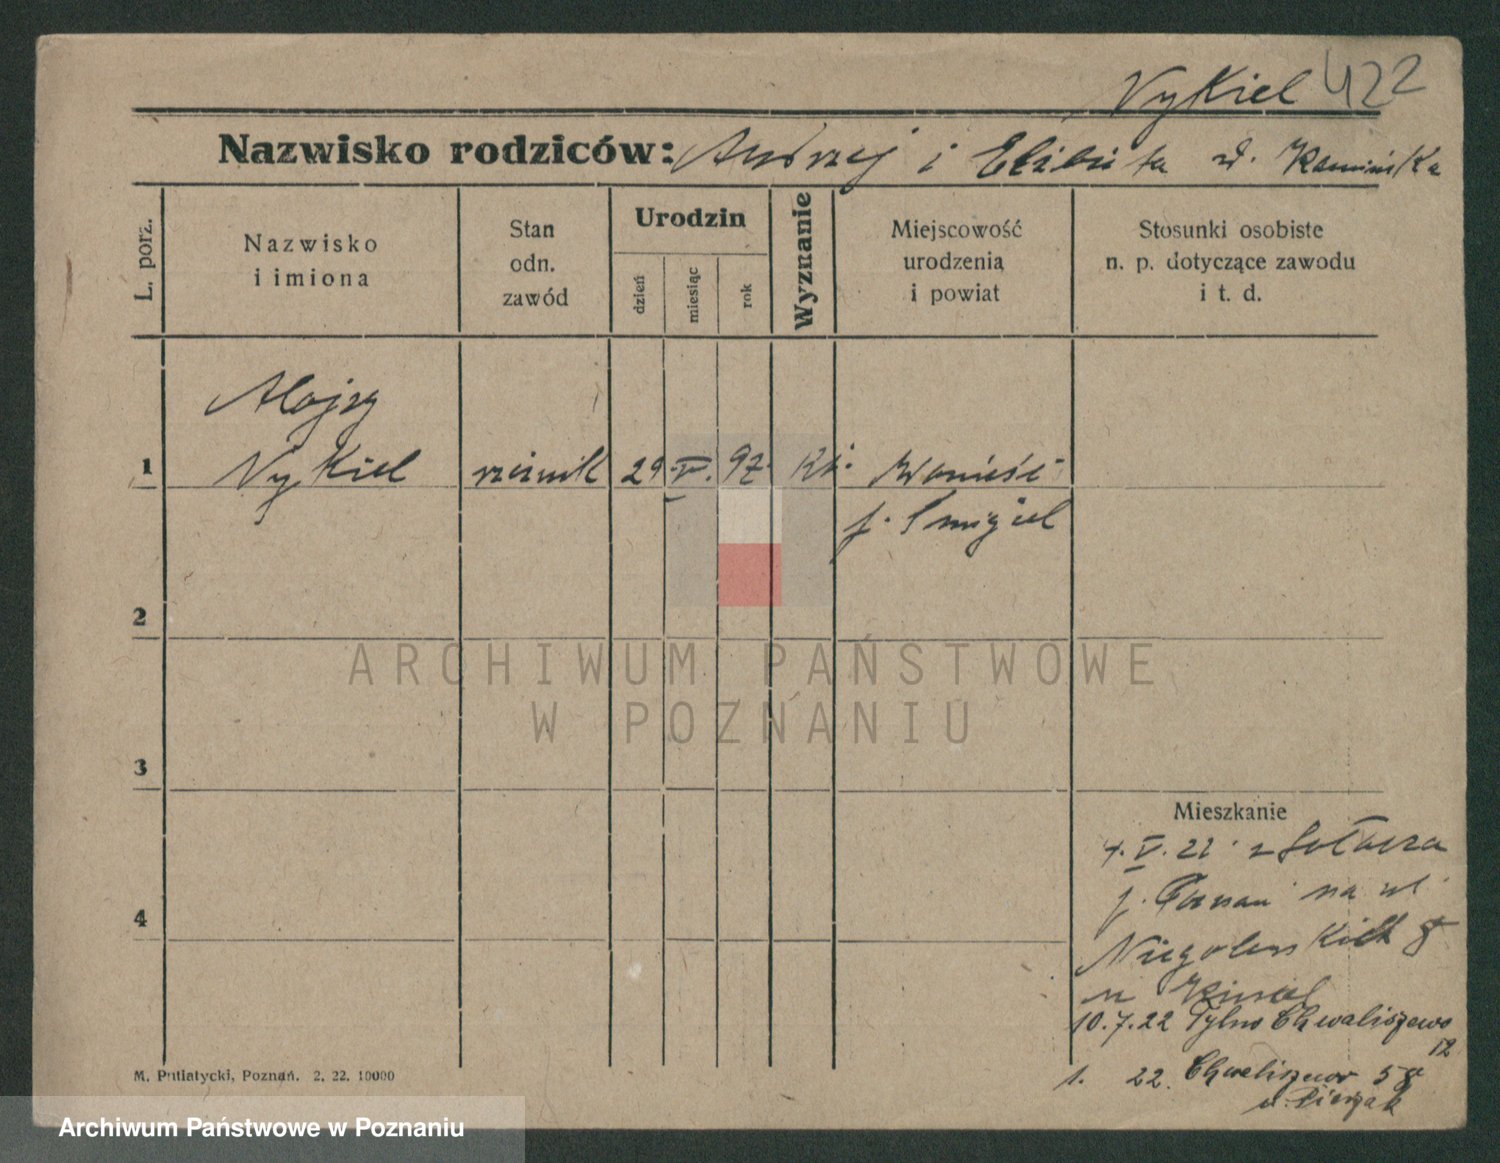 Vykiel 422
Nazwisko rodziców: Andrzej i Elżbieta z d. Kamińska
L. porz.
Nazwisko
i imiona
Stan
odn.
zawód
Urodzin
dzień
miesiąc
rok
Wyznanie
Miejscowość
urodzenia
i powiat
Stosunki osobiste
n. p. dotyczące zawodu
i t. d.
Alojzy
1 Vykiel rzeźnik 29. V. 97. Rk. Wonieść
p. Śmigiel
2
ARCHIWUM PAŃSTWOWE
W POZNANIU
3
Mieszkanie
4. V. 22 z Sołacza
4
p. Poznań na ul.
Niegolewskich 8
u
10.7.22 Tylne Chwaliszewo
12
1. 22. Chwaliszewo 58
u. Pierzak
M. Putiatycki, Poznań. 2. 22. 10000
Archiwum Państwowe w Poznaniu